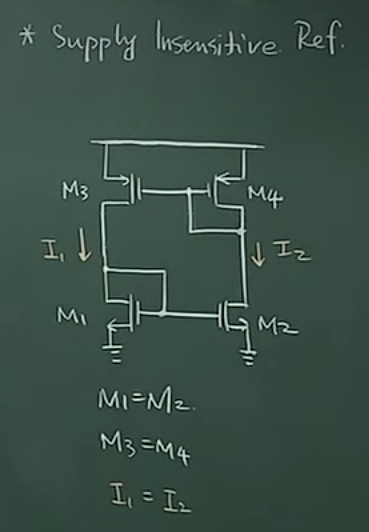 * Supply Insensitive Ref.
M3
M4
I1
I2
M1
M2
M1=M2.
M3=M4
I1=I2